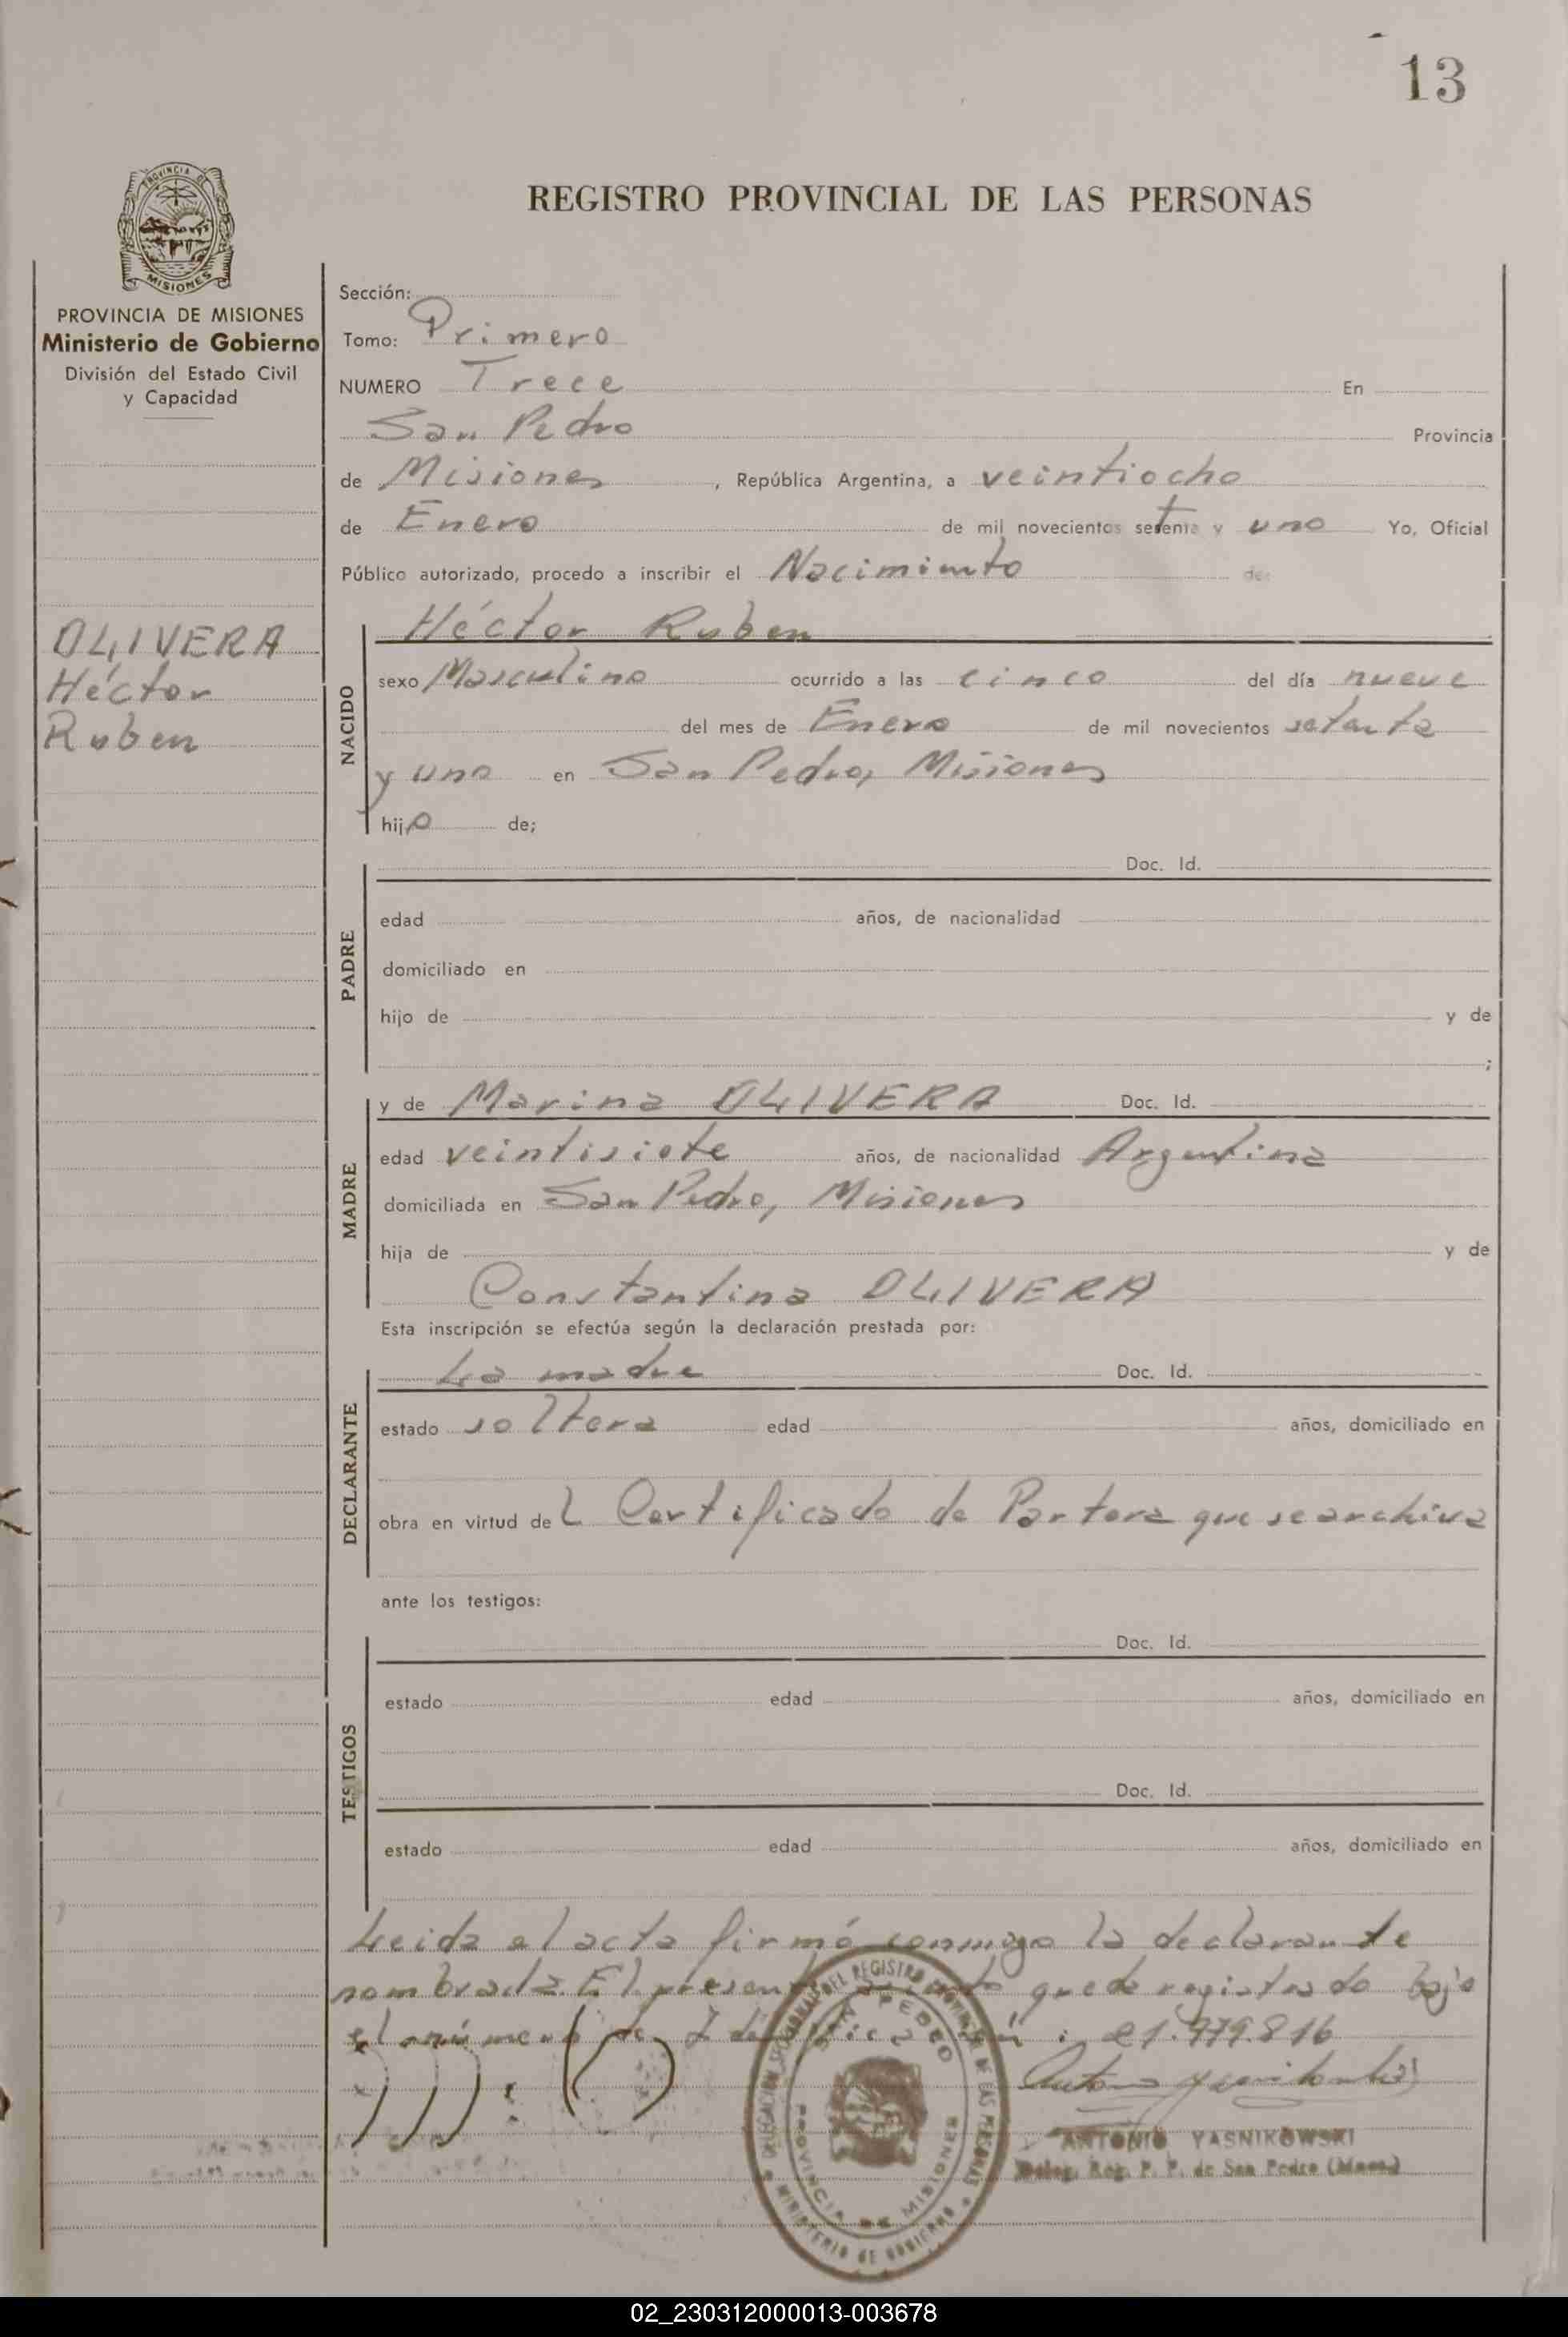 13
REGISTRO PROVINCIAL DE LAS PERSONAS
PROVINCIA DE
MISIONES
PROVINCIA DE MISIONES
Ministerio de Gobierno
División del Estado Civil
y Capacidad
OLIVERA
Héctor
Ruben
Sección:
Tomo: Primero
NUMERO Trece En
San Pedro Provincia
de Misiones, República Argentina, a veintiocho
de Enero de mil novecientos setenta y uno Yo, Oficial
Público autorizado, procedo a inscribir el Nacimiento de:
NACIDO
Héctor Ruben
sexo Masculino ocurrido a las cinco del día nueve
del mes de Enero de mil novecientos setenta
y uno en San Pedro, Misiones
hijo de;
PADRE
Doc. Id.
edad años, de nacionalidad
domiciliado en
hijo de y de
;
MADRE
y de Marina OLIVERA Doc. Id.
edad veintisiete años, de nacionalidad Argentina
domiciliada en San Pedro, Misiones
hija de y de
Constantina OLIVERA
Esta inscripción se efectúa según la declaración prestada por:
DECLARANTE
La madre Doc. Id.
estado soltera edad años, domiciliado en
obra en virtud del Certificado de Partera que se archiva
ante los testigos:
TESTIGOS
Doc. Id.
estado edad años, domiciliado en
Doc. Id.
estado edad años, domiciliado en
Leida el acta firmó conmigo la declarante
nombrada. El presente queda registrado bajo
el número de : 21.979.816
ANTONIO YASNIKOWSKI
Deleg. Reg. P. P. de San Pedro (Mnes.)
DELEGACION SECCIONAL DEL REGISTRO PROVINCIAL DE LAS PERSONAS
SAN PEDRO
PROVINCIA DE MISIONES
MINISTERIO DE GOBIERNO
02_230312000013-003678